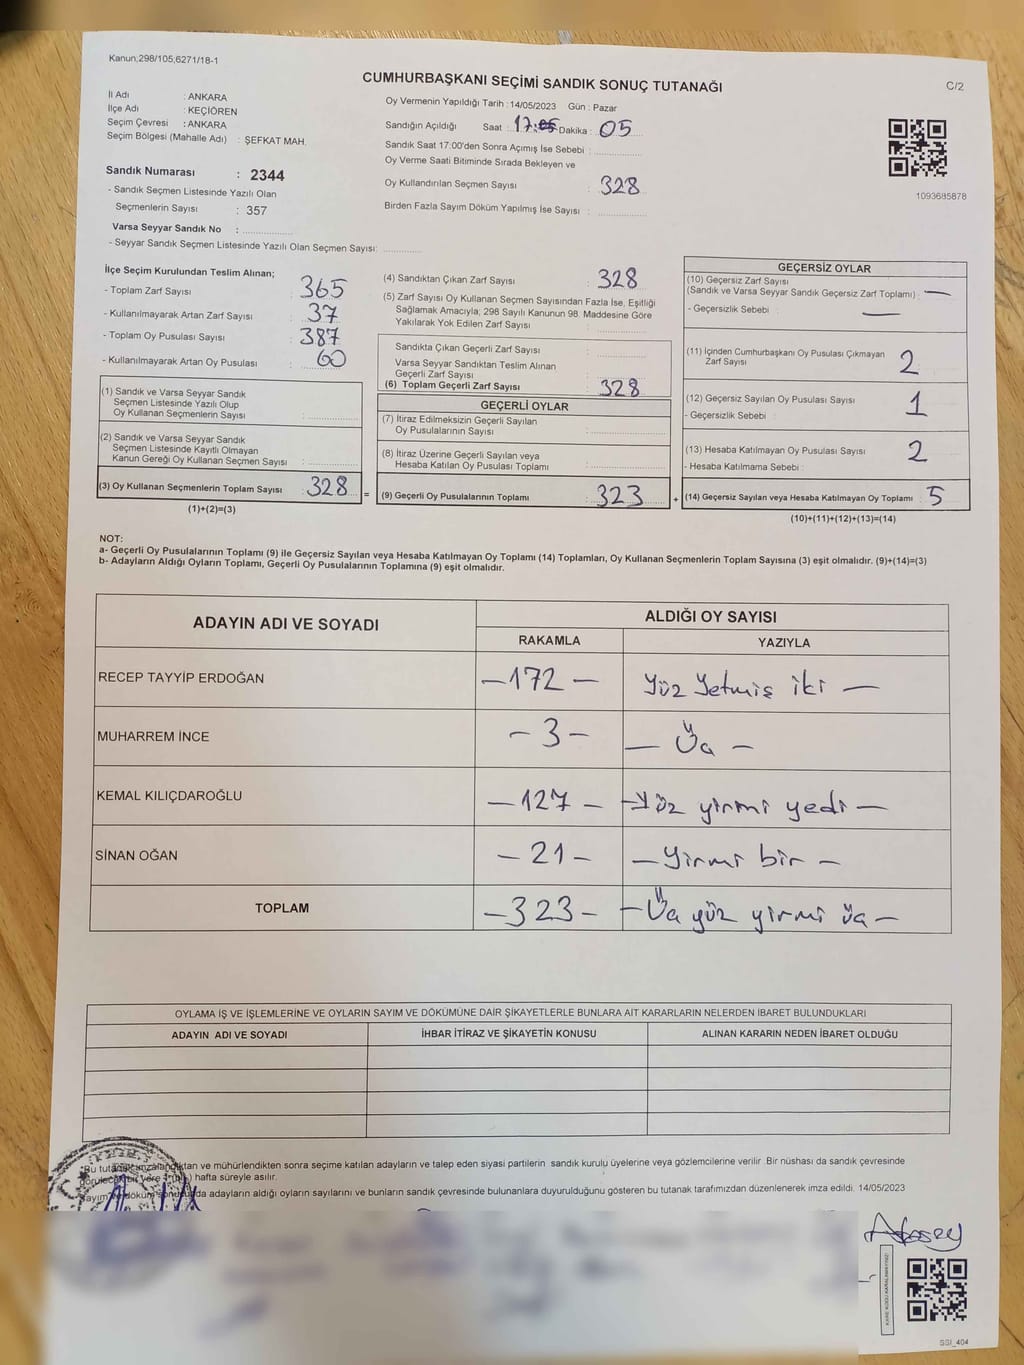 Kanun;298/105,6271/18-1
CUMHURBAŞKANI SEÇİMİ SANDIK SONUÇ TUTANAĞI
C/2
İl Adı : ANKARA
İlçe Adı : KEÇİÖREN
Seçim Çevresi : ANKARA
Seçim Bölgesi (Mahalle Adı) : ŞEFKAT MAH.
Oy Vermenin Yapıldığı Tarih : 14/05/2023 Gün : Pazar
Sandığın Açıldığı Saat : 17 Dakika : 05
Sandık Saat 17:00'den Sonra Açımış İse Sebebi :
Oy Verme Saati Bitiminde Sırada Bekleyen ve
Oy Kullandırılan Seçmen Sayısı : 328
Birden Fazla Sayım Döküm Yapılmış İse Sayısı :
1093685878
Sandık Numarası : 2344
- Sandık Seçmen Listesinde Yazılı Olan
Seçmenlerin Sayısı : 357
Varsa Seyyar Sandık No :
- Seyyar Sandık Seçmen Listesinde Yazılı Olan Seçmen Sayısı:
İlçe Seçim Kurulundan Teslim Alınan;
- Toplam Zarf Sayısı : 365
- Kullanılmayarak Artan Zarf Sayısı : 37
- Toplam Oy Pusulası Sayısı : 387
- Kullanılmayarak Artan Oy Pusulası : 60
(1) Sandık ve Varsa Seyyar Sandık
Seçmen Listesinde Yazılı Olup
Oy Kullanan Seçmenlerin Sayısı :
(2) Sandık ve Varsa Seyyar Sandık
Seçmen Listesinde Kayıtlı Olmayan
Kanun Gereği Oy Kullanan Seçmen Sayısı :
(3) Oy Kullanan Seçmenlerin Toplam Sayısı : 328 =
(1)+(2)=(3)
(4) Sandıktan Çıkan Zarf Sayısı : 328
(5) Zarf Sayısı Oy Kullanan Seçmen Sayısından Fazla İse, Eşitliği
Sağlamak Amacıyla; 298 Sayılı Kanunun 98. Maddesine Göre
Yakılarak Yok Edilen Zarf Sayısı :
Sandıkta Çıkan Geçerli Zarf Sayısı :
Varsa Seyyar Sandıktan Teslim Alınan
Geçerli Zarf Sayısı :
(6) Toplam Geçerli Zarf Sayısı : 328
GEÇERLİ OYLAR
(7) İtiraz Edilmeksizin Geçerli Sayılan
Oy Pusulalarının Sayısı :
(8) İtiraz Üzerine Geçerli Sayılan veya
Hesaba Katılan Oy Pusulası Toplamı :
(9) Geçerli Oy Pusulalarının Toplamı : 323 +
GEÇERSİZ OYLAR
(10) Geçersiz Zarf Sayısı
(Sandık ve Varsa Seyyar Sandık Geçersiz Zarf Toplamı) : —
- Geçersizlik Sebebi : —
(11) İçinden Cumhurbaşkanı Oy Pusulası Çıkmayan
Zarf Sayısı : 2
(12) Geçersiz Sayılan Oy Pusulası Sayısı : 1
- Geçersizlik Sebebi :
(13) Hesaba Katılmayan Oy Pusulası Sayısı : 2
- Hesaba Katılmama Sebebi :
(14) Geçersiz Sayılan veya Hesaba Katılmayan Oy Toplamı : 5
(10)+(11)+(12)+(13)=(14)
NOT:
a- Geçerli Oy Pusulalarının Toplamı (9) ile Geçersiz Sayılan veya Hesaba Katılmayan Oy Toplamı (14) Toplamları, Oy Kullanan Seçmenlerin Toplam Sayısına (3) eşit olmalıdır. (9)+(14)=(3)
b- Adayların Aldığı Oyların Toplamı, Geçerli Oy Pusulalarının Toplamına (9) eşit olmalıdır.
ADAYIN ADI VE SOYADI
ALDIĞI OY SAYISI
RAKAMLA YAZIYLA
RECEP TAYYİP ERDOĞAN –172– Yüz Yetmiş iki —
MUHARREM İNCE –3– — Üç –
KEMAL KILIÇDAROĞLU –127– – Yüz yirmi yedi —
SİNAN OĞAN –21– – Yirmi bir –
TOPLAM –323– – Üç yüz yirmi üç –
OYLAMA İŞ VE İŞLEMLERİNE VE OYLARIN SAYIM VE DÖKÜMÜNE DAİR ŞİKAYETLERLE BUNLARA AİT KARARLARIN NELERDEN İBARET BULUNDUKLARI
ADAYIN ADI VE SOYADI İHBAR İTİRAZ VE ŞİKAYETİN KONUSU ALINAN KARARIN NEDEN İBARET OLDUĞU
*Bu tutanak imzalandıktan ve mühürlendikten sonra seçime katılan adayların ve talep eden siyasi partilerin sandık kurulu üyelerine veya gözlemcilerine verilir. Bir nüshası da sandık çevresinde
hafta süreyle asılır.
adayların aldığı oyların sayılarını ve bunların sandık çevresinde bulunanlara duyurulduğunu gösteren bu tutanak tarafımızdan düzenlenerek imza edildi. 14/05/2023
SSİ_404